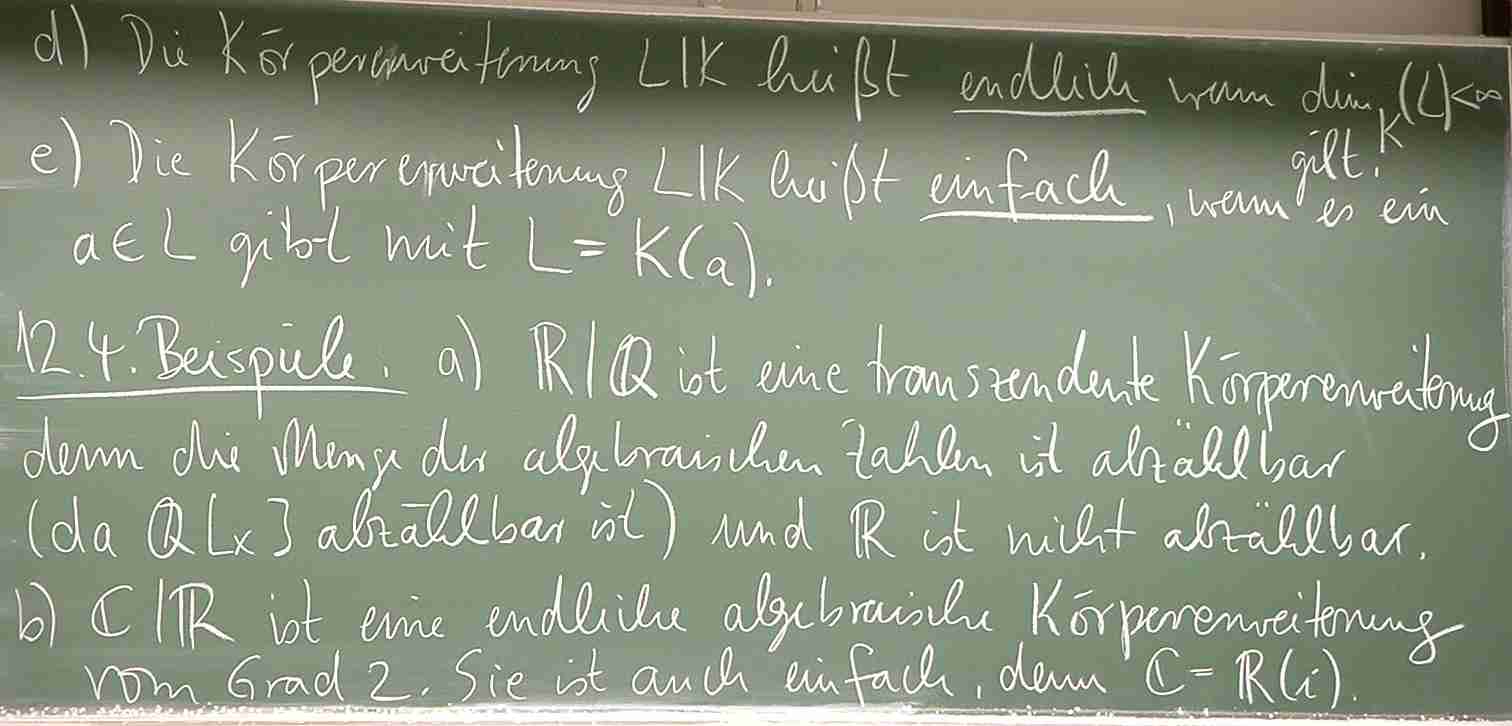 d) Die Körpererweiterung L|K heißt endlich wenn dim_K(L)<∞
gilt.
e) Die Körpererweiterung L|K heißt einfach, wenn es ein
a∈L gibt mit L = K(a).
12.4. Beispiele. a) ℝ|ℚ ist eine transzendente Körpererweiterung
denn die Menge der algebraischen Zahlen ist abzählbar
(da ℚ[x] abzählbar ist) und ℝ ist nicht abzählbar.
b) ℂ|ℝ ist eine endliche algebraische Körpererweiterung
vom Grad 2. Sie ist auch einfach, denn ℂ = ℝ(i).